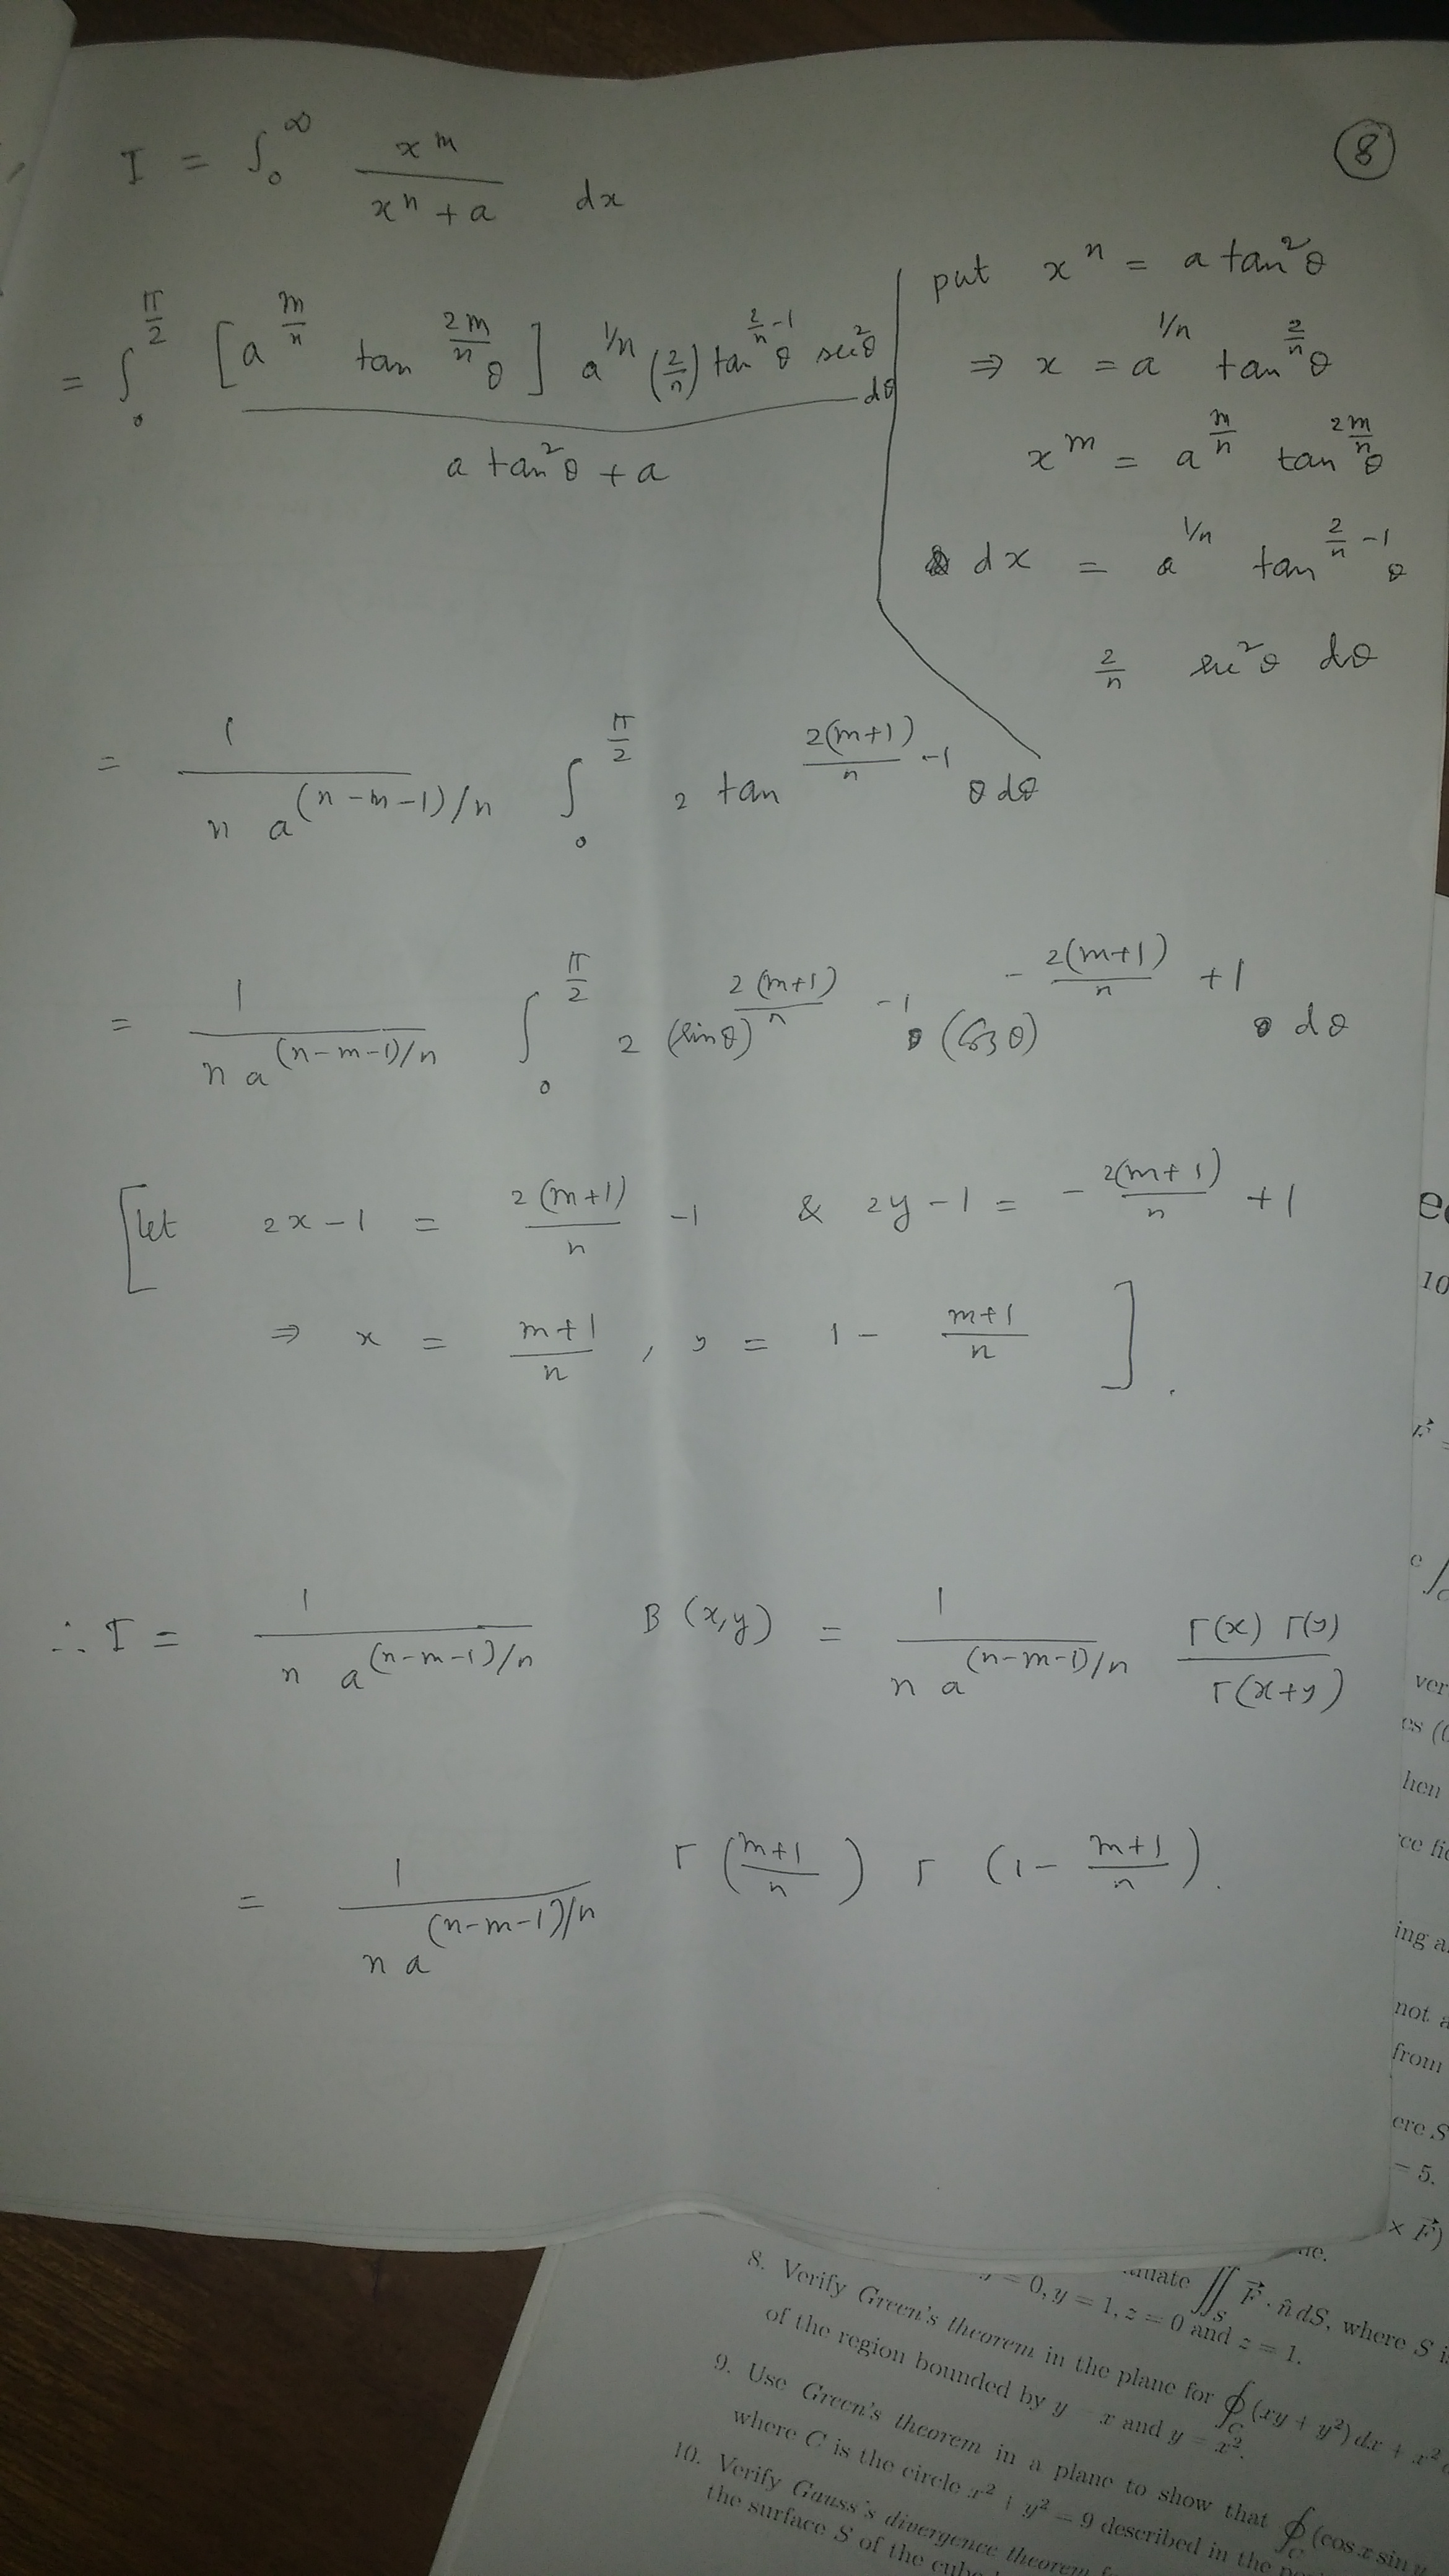 8
I = ∫₀^∞ x^m / (x^n + a) dx
put x^n = a tan²θ
⇒ x = a^{1/n} tan^{2/n} θ
x^m = a^{m/n} tan^{2m/n} θ
dx = a^{1/n} tan^{2/n -1} θ
2/n sec²θ dθ
= ∫₀^{π/2} [a^{m/n} tan^{2m/n} θ] a^{1/n} (2/n) tan^{2/n -1} θ sec²θ dθ / (a tan²θ + a)
= 1 / (n a^{(n-m-1)/n}) ∫₀^{π/2} 2 tan^{2(m+1)/n -1} θ dθ
= 1 / (n a^{(n-m-1)/n}) ∫₀^{π/2} 2 (sinθ)^{2(m+1)/n -1} (Cosθ)^{-2(m+1)/n +1} dθ
[let 2x-1 = 2(m+1)/n -1 & 2y-1 = -2(m+1)/n +1
⇒ x = (m+1)/n , y = 1 - (m+1)/n ].
∴ I = 1 / (n a^{(n-m-1)/n}) B(x,y) = 1 / (n a^{(n-m-1)/n}) Γ(x) Γ(y) / Γ(x+y)
= 1 / (n a^{(n-m-1)/n}) Γ((m+1)/n) Γ(1 - (m+1)/n).
10
ver
hen
ing a
not a
from
ere S
= 5.
× F⃗)
∬_S F⃗ · n̂ dS, where S
= 0, y = 1, z = 0 and z = 1.
8. Verify Green's theorem in the plane for ∮_C (xy + y²) dx + x²
of the region bounded by y = x and y = x².
9. Use Green's theorem in a plane to show that ∮_C (cos x sin y
where C is the circle x² + y² = 9 described in the
10. Verify Gauss's divergence theorem
the surface S of the cube